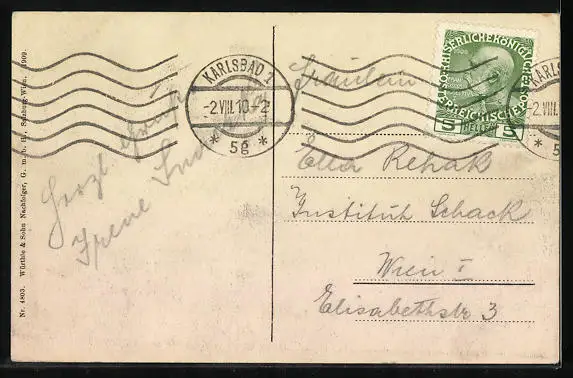 Nr. 4803. Würthle & Sohn Nachfolger, G. m. b. H., Salzburg-Wien. 1909.
Herzl. Grüße
Irene
KARLSBAD 2
-2.VIII.10-2
* 5g *
K.K.OST. KAISERLICHE KÖNIGL
ÖSTERREICHISCHE POST
5 HELLER 5
KARLS
-2.VIII
* 5
Fräulein
Ella Rehak
Institut Schack
Wien I
Elisabethstr 3